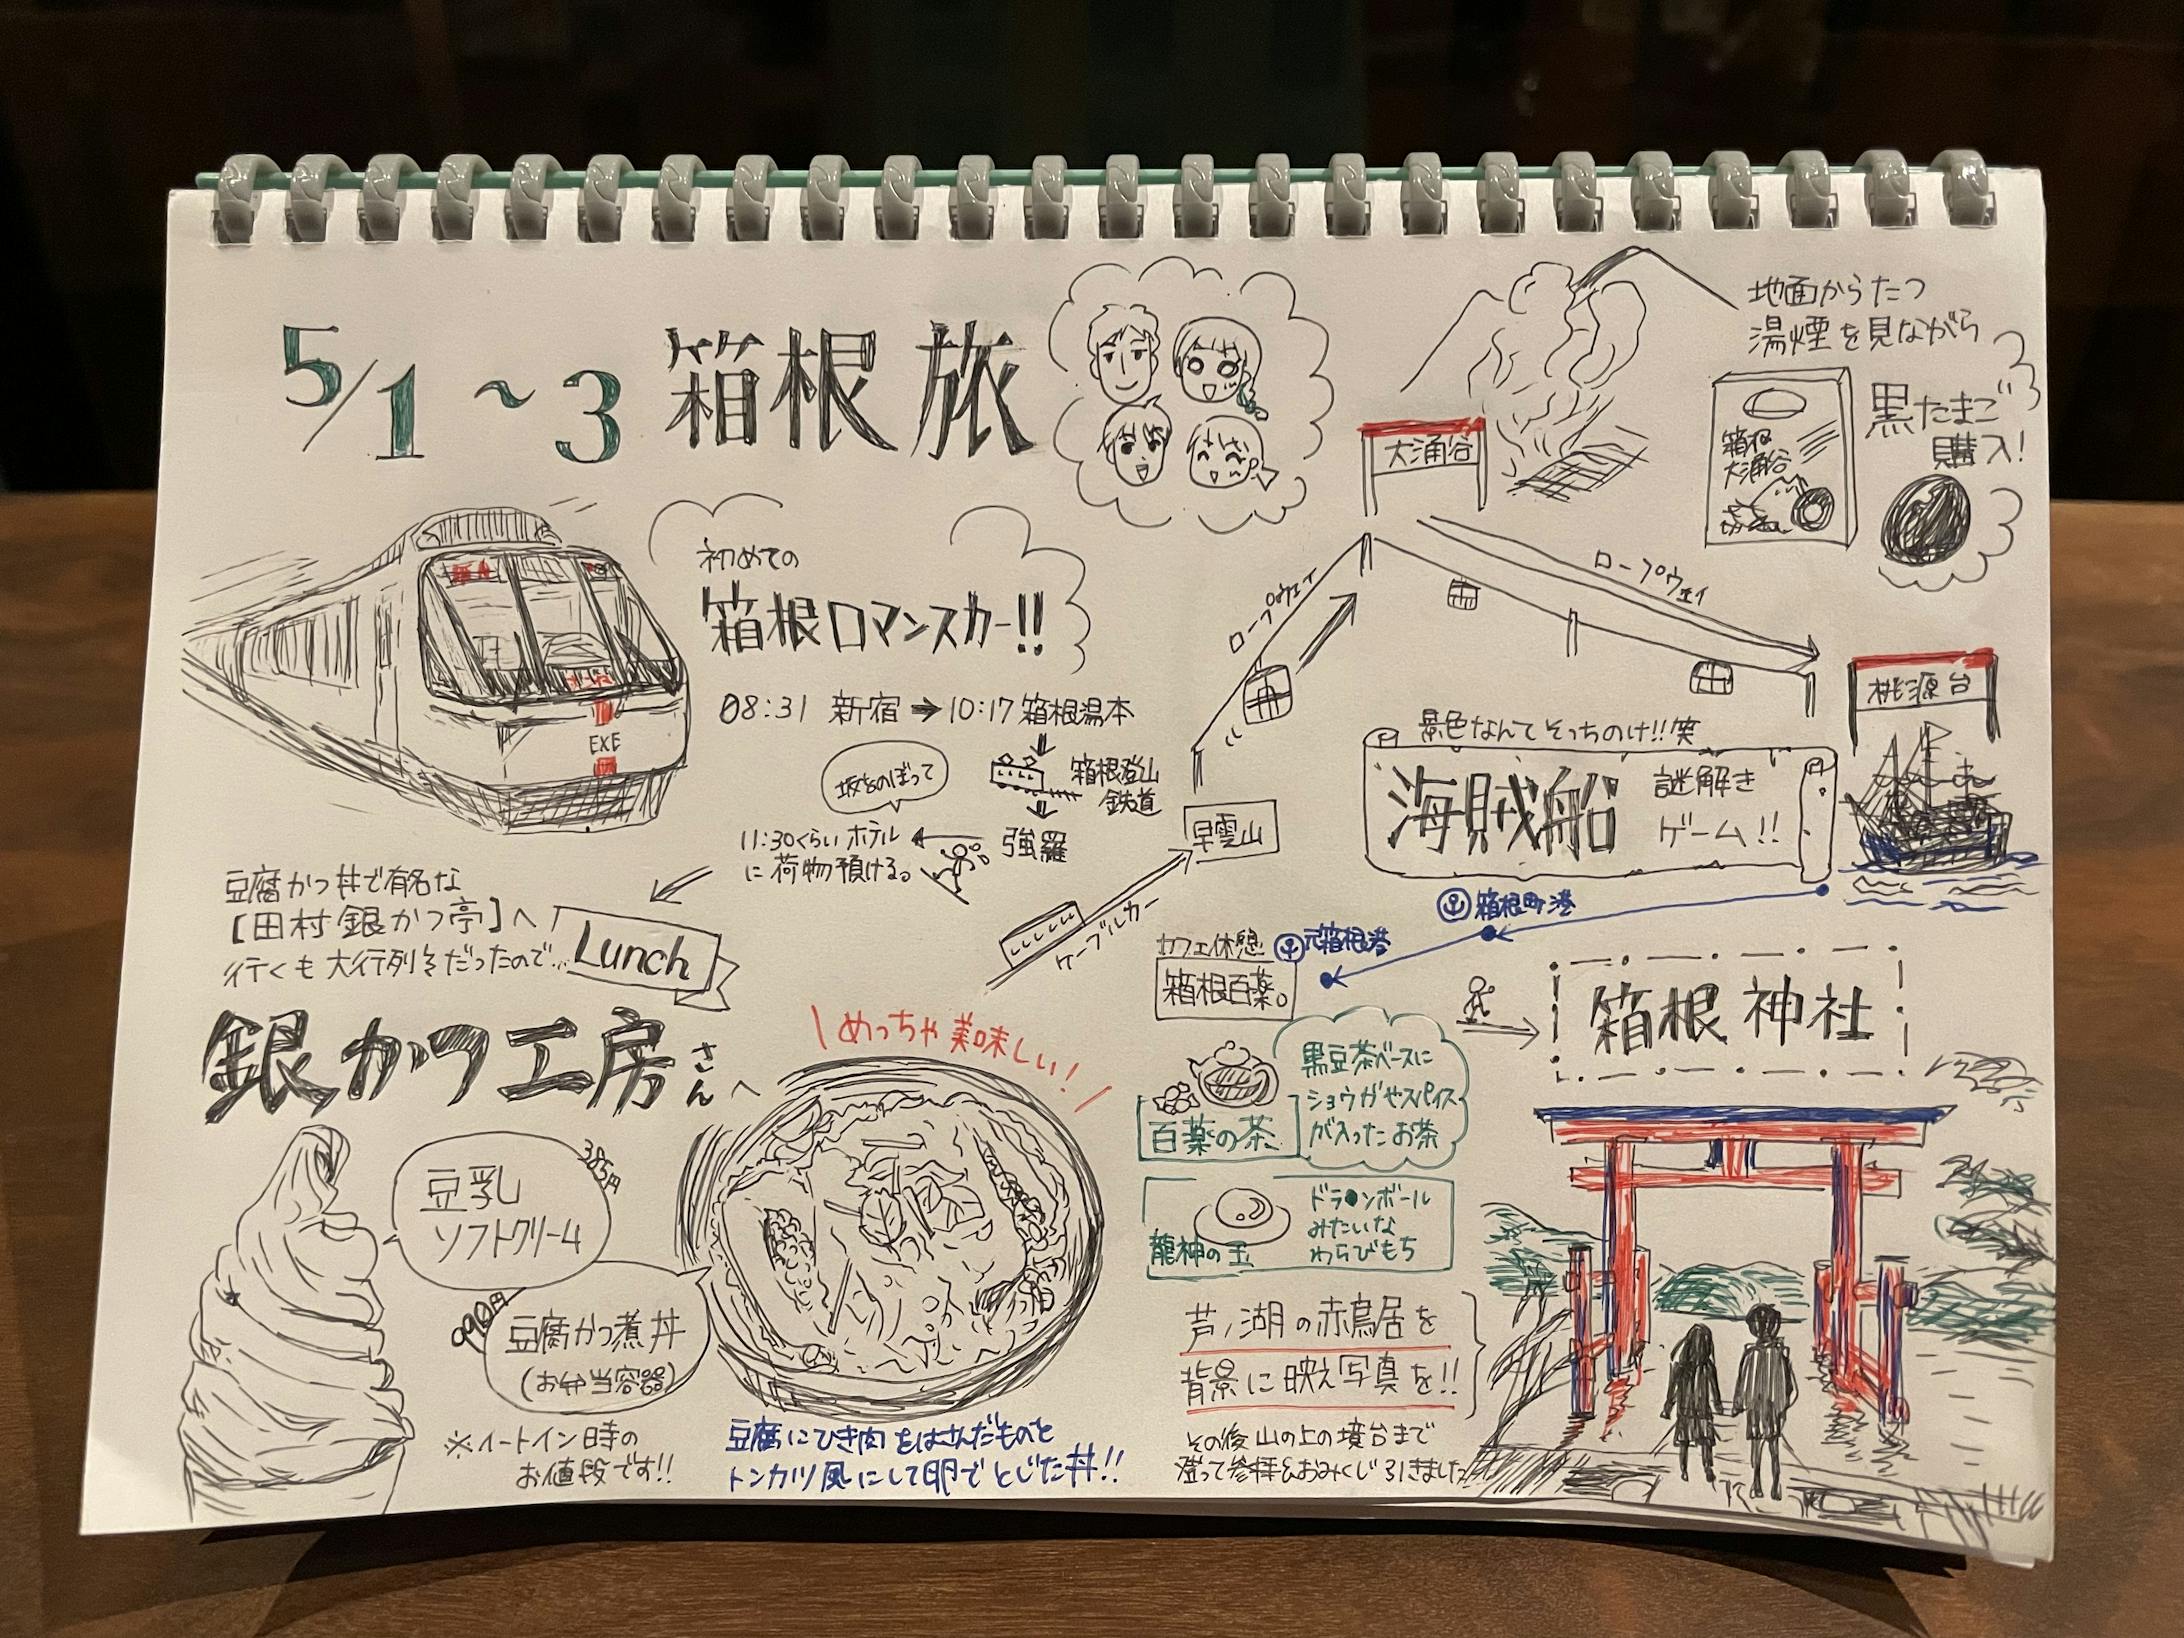 5/1~3 箱根旅
初めての
箱根ロマンスカー!!
EXE
08:31 新宿→10:17 箱根湯本
箱根登山
鉄道
強羅
坂をのぼって
11:30くらいホテル
に荷物預ける。
豆腐かつ丼で有名な
[田村銀かつ亭]へ
行くも大行列そだったので…
Lunch
銀かつ工房さんへ
\めっちゃ美味しい!/
豆乳
ソフトクリーム
385円
豆腐かつ煮丼
(お弁当容器)
990円
※イートイン時の
お値段です!!
豆腐にひき肉をはさんだものを
トンカツ風にして卵でとじた丼!!
ケーブルカー
早雲山
ロープウェイ
大涌谷
地面からたつ
湯煙を見ながら
黒たまご
購入!
箱根
大涌谷
ロープウェイ
桃源台
景色なんてそっちのけ!!笑
海賊船
謎解き
ゲーム!!
箱根町港
元箱根港
カフェ休憩
箱根百薬。
百薬の茶
黒豆茶ベースに
ショウガやスパイス
が入ったお茶
龍神の玉
ドラ●ンボール
みたいな
わらびもち
箱根神社
芦ノ湖の赤鳥居を
背景に映え写真を!!
その後山の上の境台まで
登って参拝&おみくじ引きました